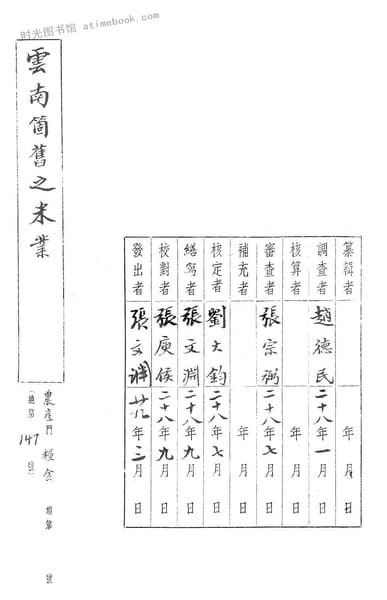 时光图书馆 atimebook.com
纂輯者 年 月 日
調查者 趙德民 二十八年一月 日
核算者 年 月 日
審查者 張宗弼 二十八年七月 日
補充者 年 月 日
核定者 劉大鈞 二十八年七月 日
繕寫者 張文淵 二十八年九月 日
校對者 張庚候 二十八年九月 日
發出者 張文淵 年三月 日
雲南箇舊之米業
農產門 糧食 類第 號
147